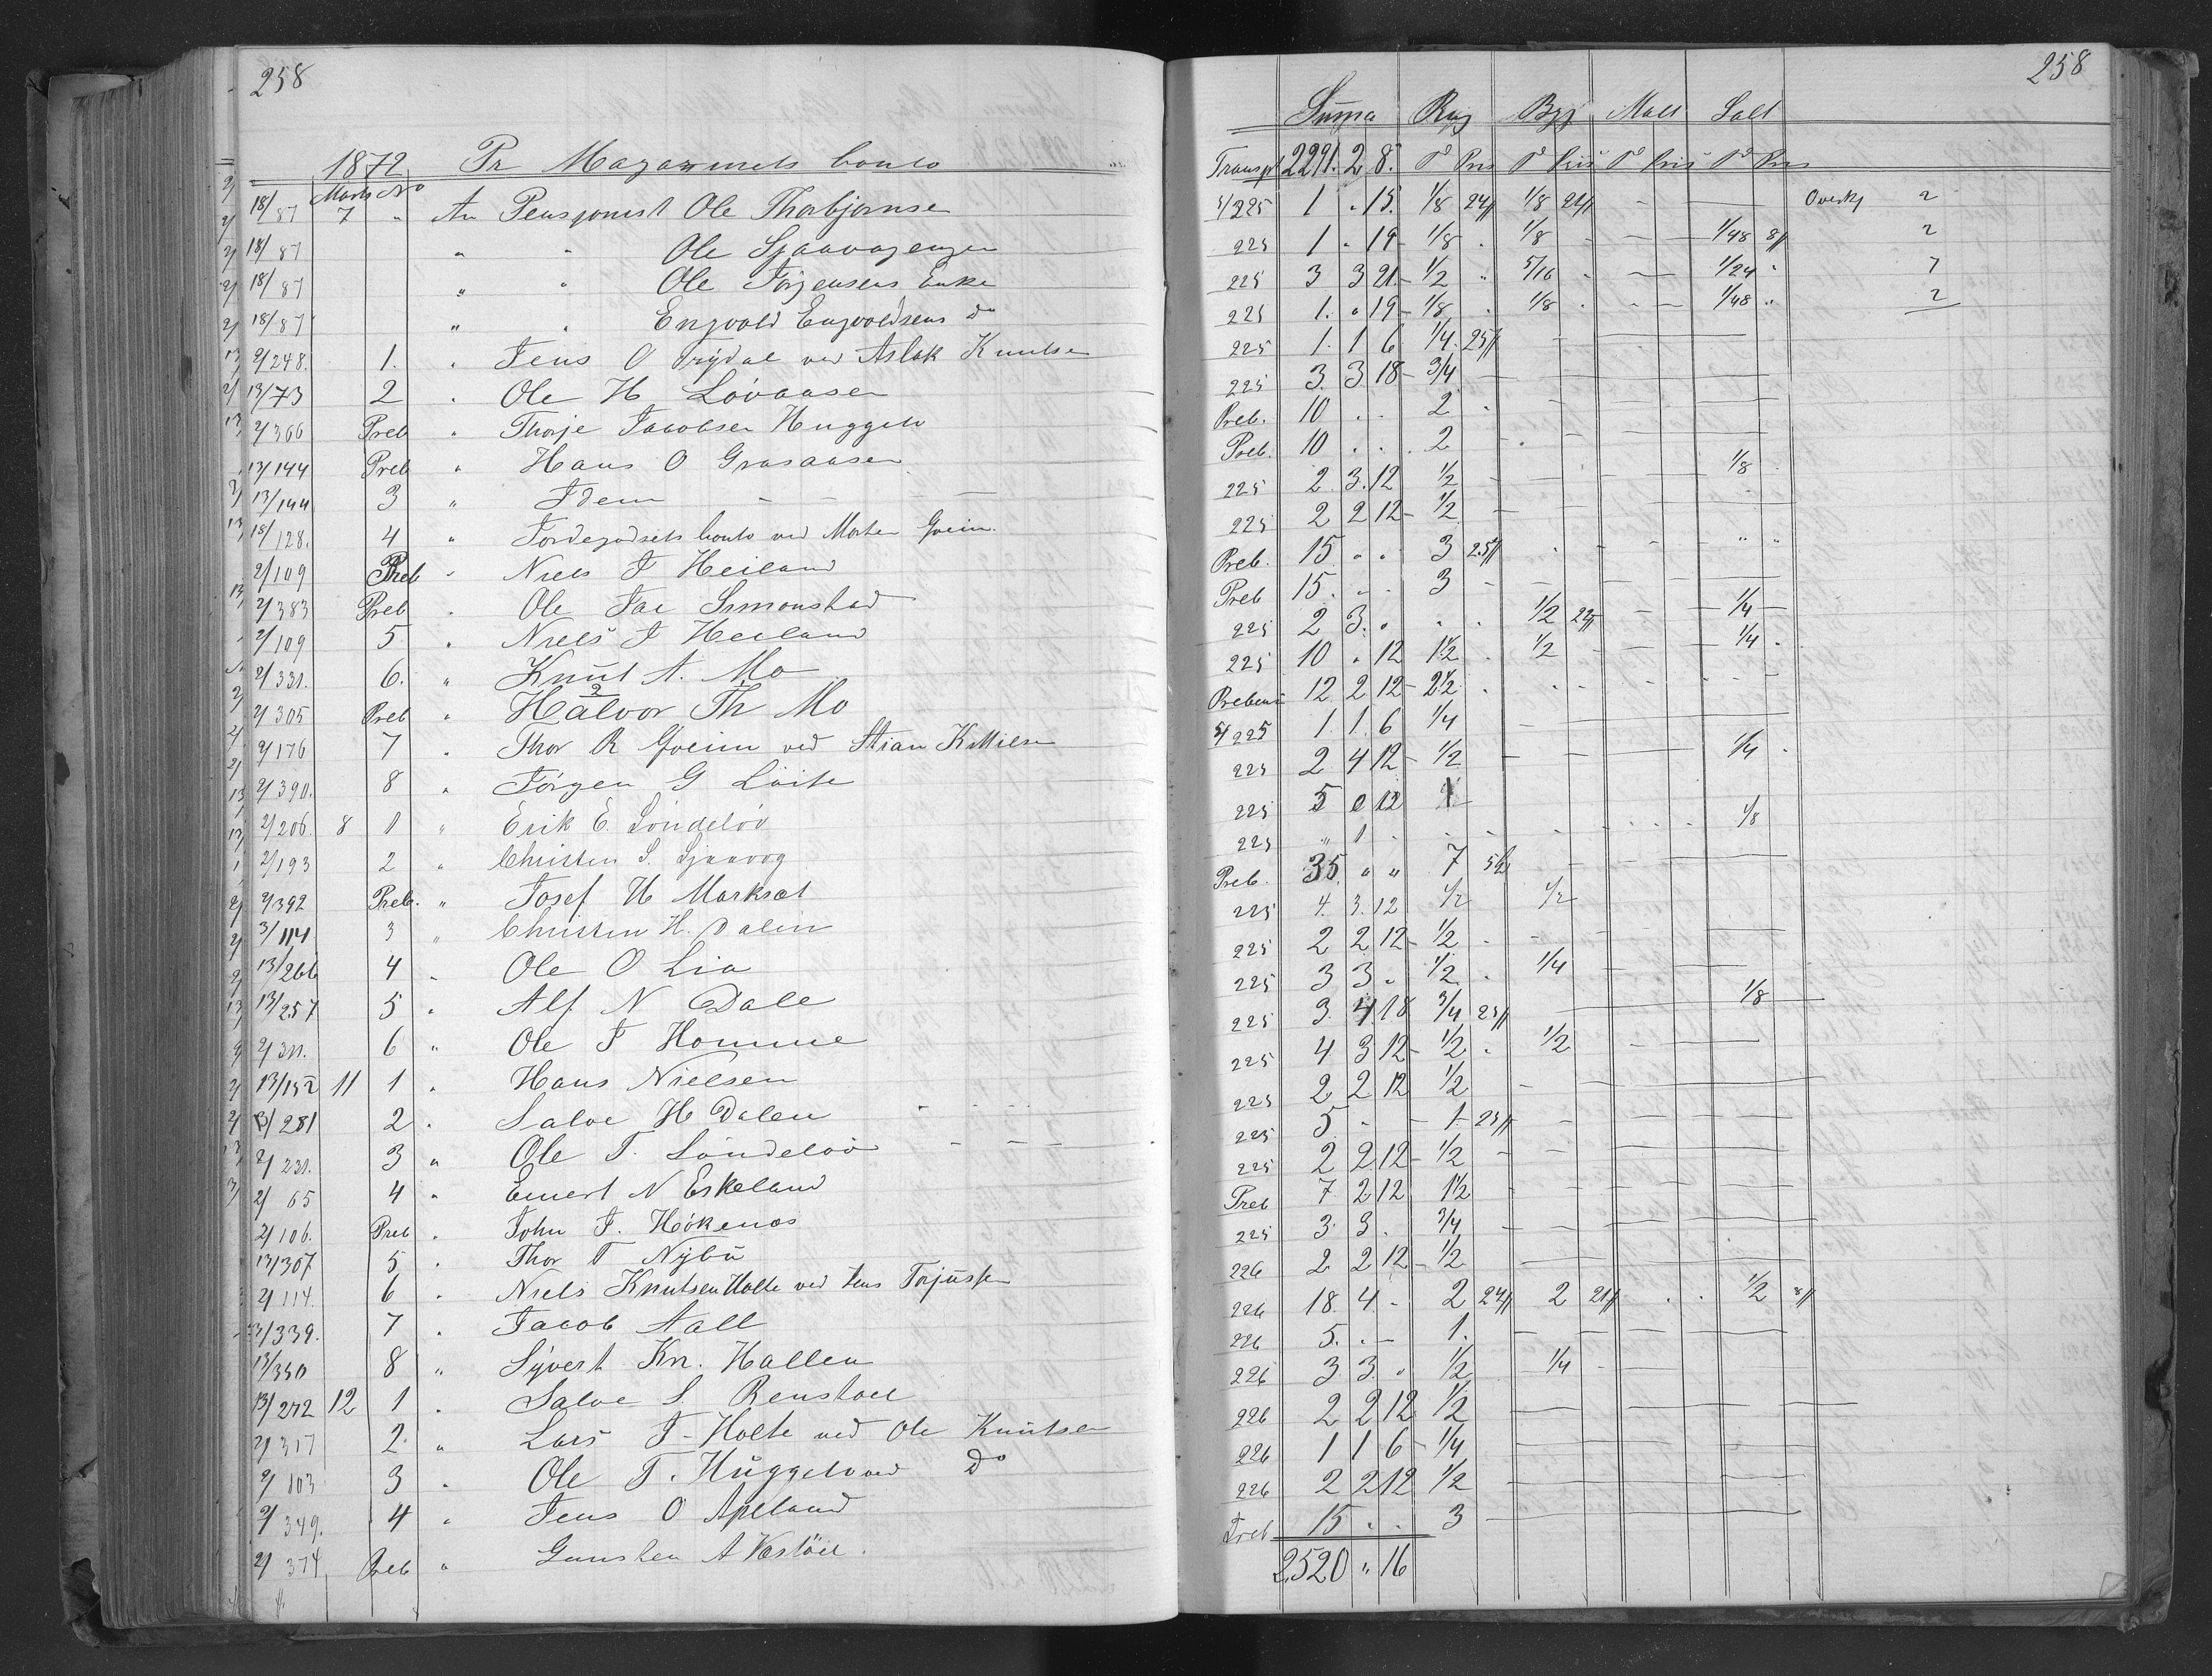 258
1872 Pr Magazinets Conto
Marts No
18/87 7 " An Pensjonist Ole Thorbjørnsen
18/87 " " Ole Sjaavaagengen
18/87 " " Ole Jørgensens Enke
18/87 " " Engvold Engvoldsens Do
2/248. 1. " Jens O Trydal ved Aslak Knutsen
13/73 2 " Ole H Løvaasen
2/366 Preb " Thorje Jacobsen Huggelv
13/144 Preb " Hans O Grasaasen
13/144 3 " Idem — — —
18/128. 4 " Jordegodsets Conto ved Morten Gveim
2/109 Preb " Niels J Heiland
2/383 Preb " Ole Jac Simonstad
2/109 5 " Niels J Heiland
2/331. 6. " Knut A. Mo
2/305 Preb " Halvor Th Mo
2/176 7 " Thor R Gveim ved Stian Kittilsen
2/390. 8 " Jörgen G Løite
2/206. 8 1 " Erik E. Söndeløv
2/193 2 " Christen S. Sjaavog
2/392 Preb. " Josef H Marksæt
3/114 3 " Christen H. Dalen
13/266 4 " Ole O Lia
13/257 5 " Alf N Dale
2/311. 6 " Ole J Homme
13/152 11 1 " Hans Nielsen
13/281 2 " Salve H Dalen
2/231. 3 " Ole T. Söndeløv
2/65 4 " Emert N Eskeland
2/106. Preb " John J. Hökenæs
13/307 5 " Thor T Nybü
2/114. 6 " Niels Knutsen Holte ved Jens Torjussen
13/339. 7 " Jacob Aall
13/350 8 " Syvert Kn. Hallen
13/272 12 1 " Salve S. Renstøl
2/317 2. " Lars J Holte ved Ole Knutsen
2/103 3 " Ole T. Huggelv ved Do
2/349. 4 " Jens O Apeland
2/374 Preb " Gunsten A Vestöl.
258
Summa Rug Byg Malt Salt
Transpt 2291. 2 8. Td Pris Td Pris Td Pris Td Pris
5/225 1 " 15. 1/8 24 1/8 22 — — Overky 2
225 1 " 19 1/8 " 1/8 — — 1/48 8 2
225 3 3 21 1/2 " 5/16 — — 1/24 " 7
225 1. " 19 1/8 " 1/8 — — 1/48 " 2
225 1. 1 6 1/4 25
225 3. 3 18 3/4
Preb. 10 " " 2
Preb. 10 " " 2
225 2. 3. 12 1/2 1/8
225 2 2 12 1/2
Preb. 15 " " 3 25
Preb 15. " " 3
225 2 3. " " 1/2 22 — 1/4
225 10 " 12 1 1/2 1/2 — 1/4
Prebend 12 2 12 2 1/2
5/225 1. 1. 6 1/4
225 2 4 12 1/2 1/4
225 5 0 12 1
225 " 1 " 1/8
Preb. 35 " " 7
225 4. 3. 12 1/2 1/2
225 2 2 12 1/2
225 3 3 " 1/2 1/4
225 3. 4 18 3/4 25 1/8
225 4 3 12 1/2 1/2
225 2 2 12 1/2
225 5 " " 1 25
225 2 2 12 1/2
Preb 7 2 12 1 1/2
225 3. 3 . 3/4
226 2 2 12 1/2
226 18. 4 " 2 24 2 21 1/2 8
226 5. " — 1.
226 3 3 " 1/2 1/4
226 2 2 12 1/2
226 1 1 6 1/4
226 2 2 12 1/2
Preb 15 " " 3
2520 " 16